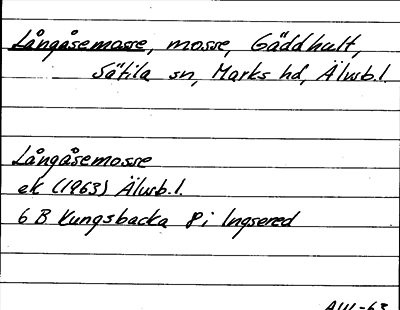 Långåsemosse, mosse, Gäddhult,
Sätila sn, Marks hd, Älvsb.l.
Långåsemosse
ek (1963) Älvsb.l.
6 B Kungsbacka 8 i Ingsered